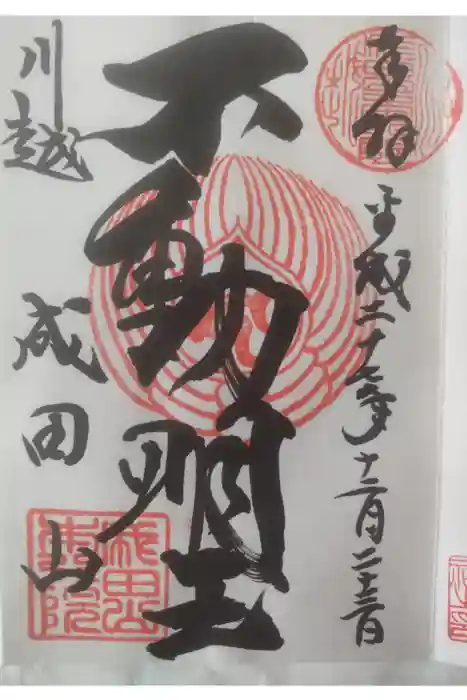 奉拝
平成二十七年十二月二十三日
不動明王
川越
成田山